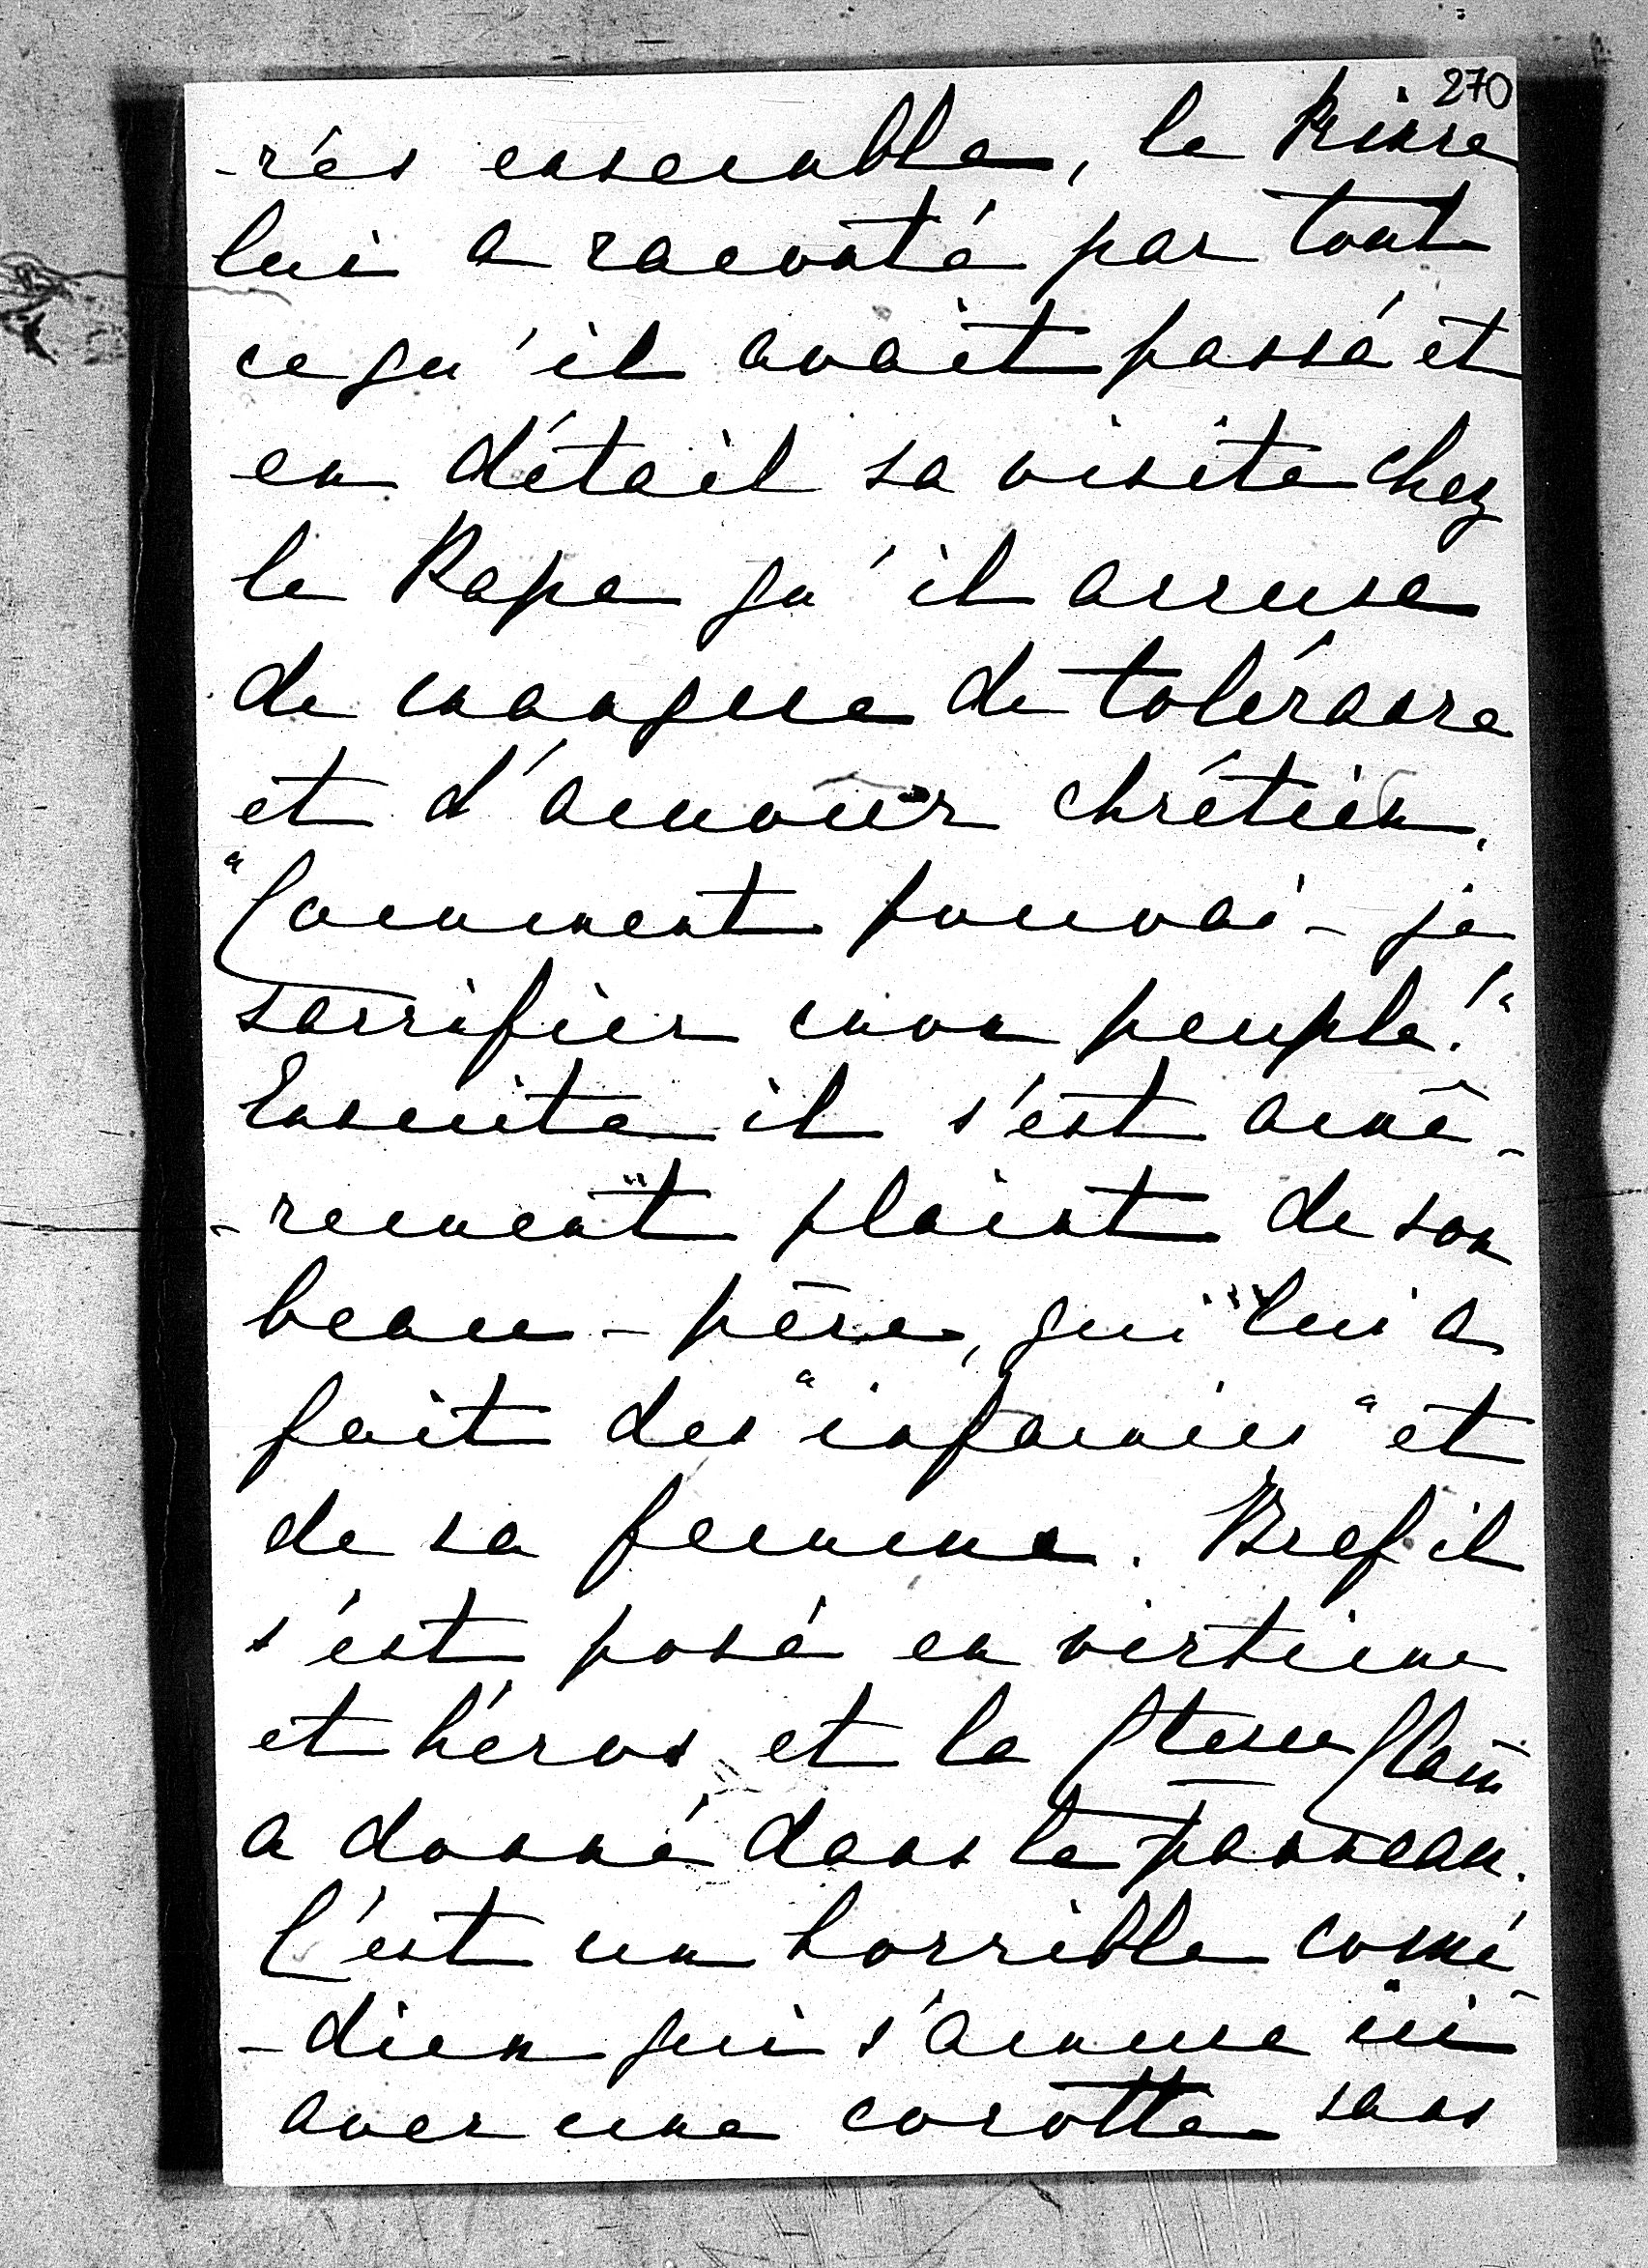 270
-rés ensemble, le Prince
lui a raconté par tout
ce qu'il avait passé et
en détail sa visite chez
le Pape qu'il accuse
de manque de tolérance
et d'amour chrétien.
"Comment pouvai-je
sacrifier mon peuple!"
Ensuite il s'est amè-
-rement plaint de son
beau-père, qui lui a
fait des "infamies" et
de sa femme. Bref il
s'est posé en victime
et héros, et la
a donné dans le panneau.
C'est un horrible comé-
-dien qui s'amuse ici
avec une cocotte sans